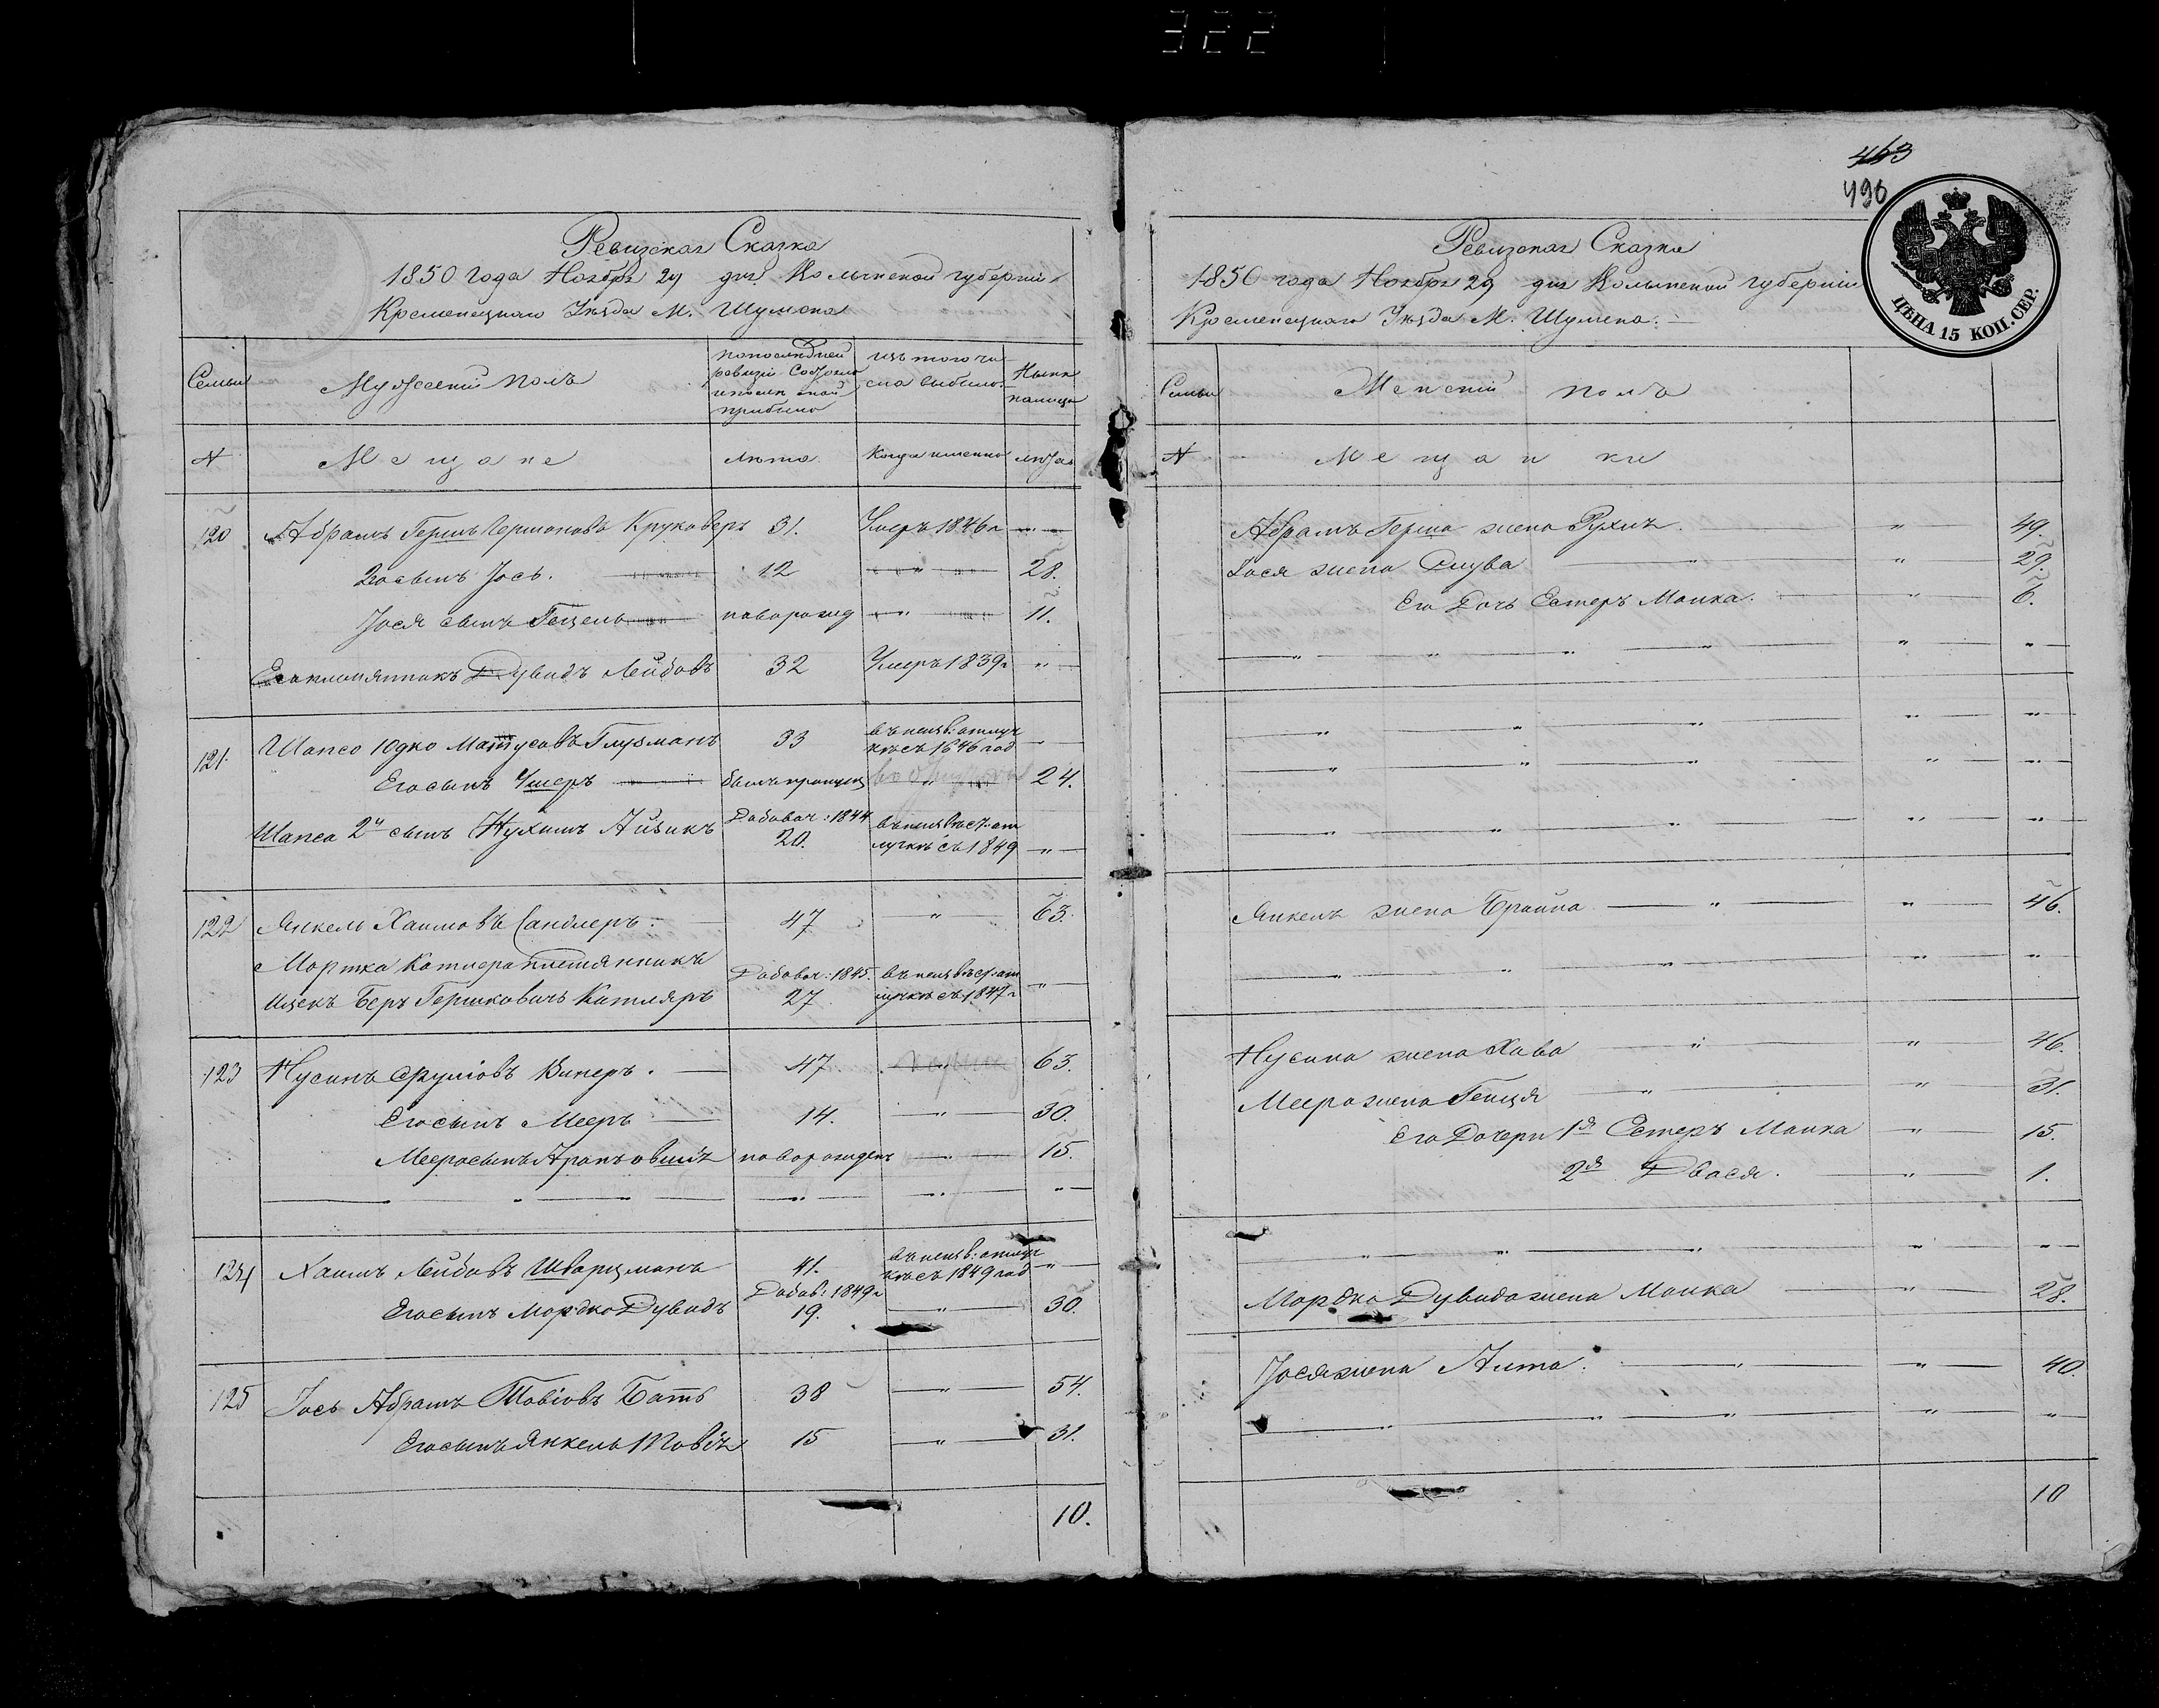 322
Ревизская Сказка
1850 года Ноября 29 дня Волынской губерніи
Кременецкаго Уѣзда М. Шумска
Семьи
Мужескій полъ
по последней
ревизіи Состояло
и после оной
прибыло
изъ того чи
сла выбыло
Нынѣ
налицо
№
Мещане
лѣта
Когда именно
лѣта
120 Абрамъ Гершъ Гершоновъ Круковеръ 31. Умеръ 1846 г
Его сынъ Іось. 12 " 28.
Іося сынъ Гецель новорожд " 11.
Его племянникъ Дувидъ Лейбовъ 32 Умеръ 1839 г "
121. Шапсо Юдко Матусовъ Глузманъ 33 въ неизв: отлуч
кѣ съ 1846 год
Его сынъ Ушеръ былъ пропущ " 24.
Шапса 2й сынъ Нухимъ Айзикъ Добовач: 1844
20. въ неизвѣст. от
лучкѣ съ 1849 "
122 Янкель Хаимовъ Сандлеръ. 47 " 63.
Мортка Котлера племянникъ
Ицекъ Беръ Гершковичъ Котляръ Добовач: 1845.
27. въ неизвѣст. от
лучкѣ съ 1847 г "
123 Нусинъ Сруліовъ Винеръ. 47. 63.
Его сынъ Мееръ 14. " 30.
Меера сынъ Аронъ овшія новорожденъ " 15.
" " " " "
124 Хаимъ Лейбовъ Шварцманъ 41. въ неизв: отлуч
кѣ съ 1849 год "
Его сынъ Мордко Дувидъ Добав: 1849 г
19. " 30.
125 Іось Абрамъ Товіовъ Ботъ 38 " 54.
Его сынъ Янкель Товія 15 " 31.
10.
463
490
ЦѢНА 15 КОП. СЕР.
Ревизская Сказка
1850 года Ноября 29 дня Волынской губерніи
Кременецкаго Уѣзда М. Шумска.
Семьи
Женскій полъ
№
Мещанки
Абрамъ Герша жена Рухля. " 49.
Іося жена Слува " " 29.
Его Дочь Естеръ Малка. " 6.
" " " " " "
" " " "
" " " " "
" " " " "
Янкеля жена Брайна " " 46.
" " " " "
Нусина жена Хава " " 46.
Меера жена Генця " " 31.
Его Дочери 1я Естеръ Малка " 15.
2я Двося. " 1.
" " " " "
Мордко Дувида жена Малка " 28.
Іося жена Алта. " " 40.
" " " " "
10